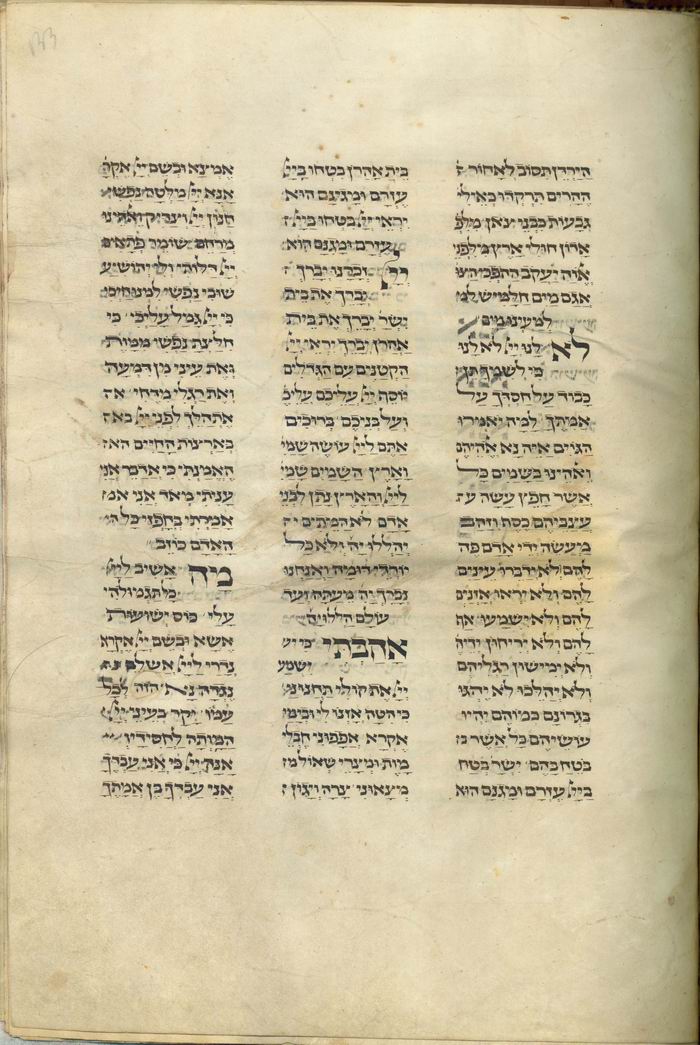 הירדן תסוב לאחור
ההרים תרקדו כאילי
גבעות כבני צאן מלפ
אדון חולי ארץ מלפני
אלוה יעקב ההפכי הצו
אגם מים חלמיש למ
למעינו מים
לא לנו יי לא לנו
כי לשמך תן
כבוד על חסדך על
אמיתך למה יאמרו
הגוים איה נא אלהיהם
ואלהינו בשמים כל
אשר חפץ עשה עצ
עצביהם כסף וזהב
מעשה ידי אדם פה
להם ולא ידברו עינים
להם ולא יראו אזנים
להם ולא ישמעו אף
להם ולא יריחון ידיה
ולא ימישון רגליהם
ולא יהלכו לא יהגו
בגרונם כמוהם יהיו
עושיהם כל אשר ב
בטח בהם ישר בטח
ביי עזרם ומגנם הוא
בית אהרן בטחו ביי
עזרם ומגינם הוא
יראי יי בטחו ביי
עזרם ומגנם הוא
יי זכרנו יברך
יברך את בית
ישר יברך את בית
אהרן יברך יראי יי
הקטנים עם הגדלים
יוסף יי עליכם עליכ
ועל בניכם ברוכים
אתם ליי עושה שמי
וארץ השמים שמי
ליי והארץ נתן לבני
אדם לא המתים יה
יהללו יה ולא כל
יורדי דומה ואנחנו
נברך יה מעתה ועד
עולם הללויה
אהבתי כי יש
ישמע
יי את קולי תחנוני
כי הטה אזנו לי ובימי
אקרא אפפוני חבלי
מות ומצרי שאול מ
מצאוני צרה ויגון
אמצא ובשם יי אקר
אנא יי מלטה נפשי
חנון יי וצדיק ואלהינו
מרחם שומר פתאים
יי דלותי ולי יהושיע
שובי נפשי למנוחיכי
כי יי גמל עליכי כי
חלצת נפשי ממות
ואת עיני מן דמעה
ואת רגלי מידחי את
אתהלך לפני יי בא
בארצות החיים הא
האמנתי כי אדבר אני
עניתי מאד אני אמ
אמרתי בחפזי כל ה
האדם כוזב
מה אשיב ליי
כל תגמולוהי
עלי כוס ישועות
אשא ובשם יי אקרא
נדרי ליי אשלם נג
נגדה נא לכל
עמו יקר בעיני יי
המותה לחסידיו
אנה יי כי אני עבדך
אני עבדך בן אמתך